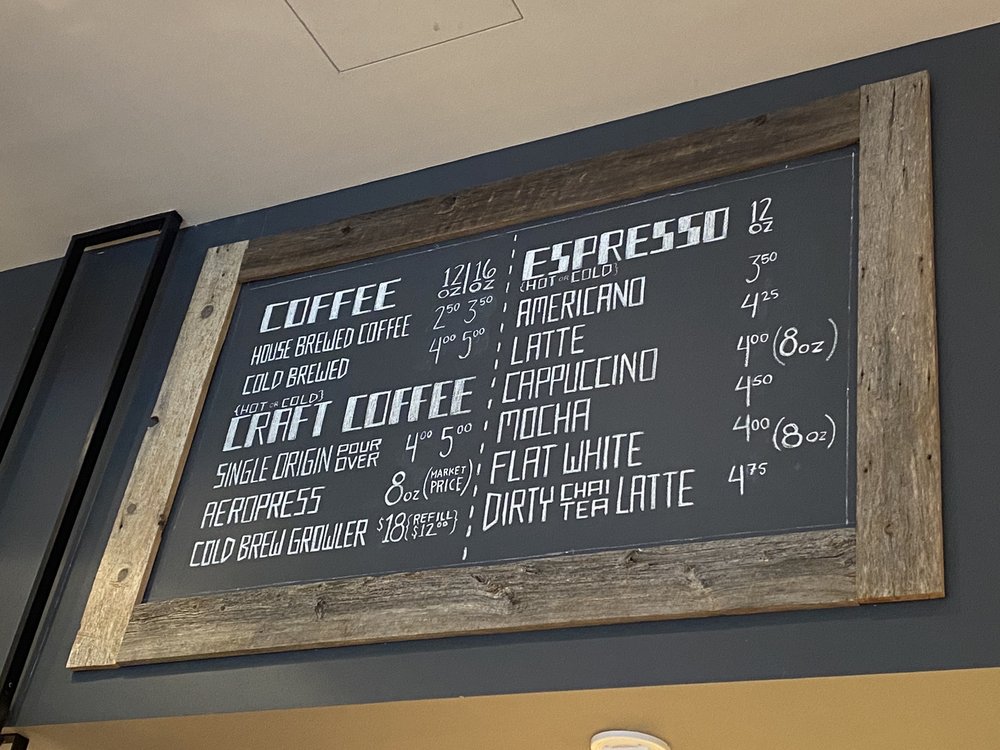 COFFEE 12 OZ | 16 OZ
HOUSE BREWED COFFEE 2 50 3 50
COLD BREWED 4 00 5 00
{HOT OR COLD}
CRAFT COFFEE
SINGLE ORIGIN POUR OVER 4 00 5 00
AEROPRESS 8 oz (MARKET PRICE)
COLD BREW GROWLER $18 {REFILL $12 00}
ESPRESSO 12 OZ
{HOT OR COLD}
AMERICANO 3 50
LATTE 4 25
CAPPUCCINO 4 00 (8 oz)
MOCHA 4 50
FLAT WHITE 4 00 (8 oz)
DIRTY CHAI TEA LATTE 4 75